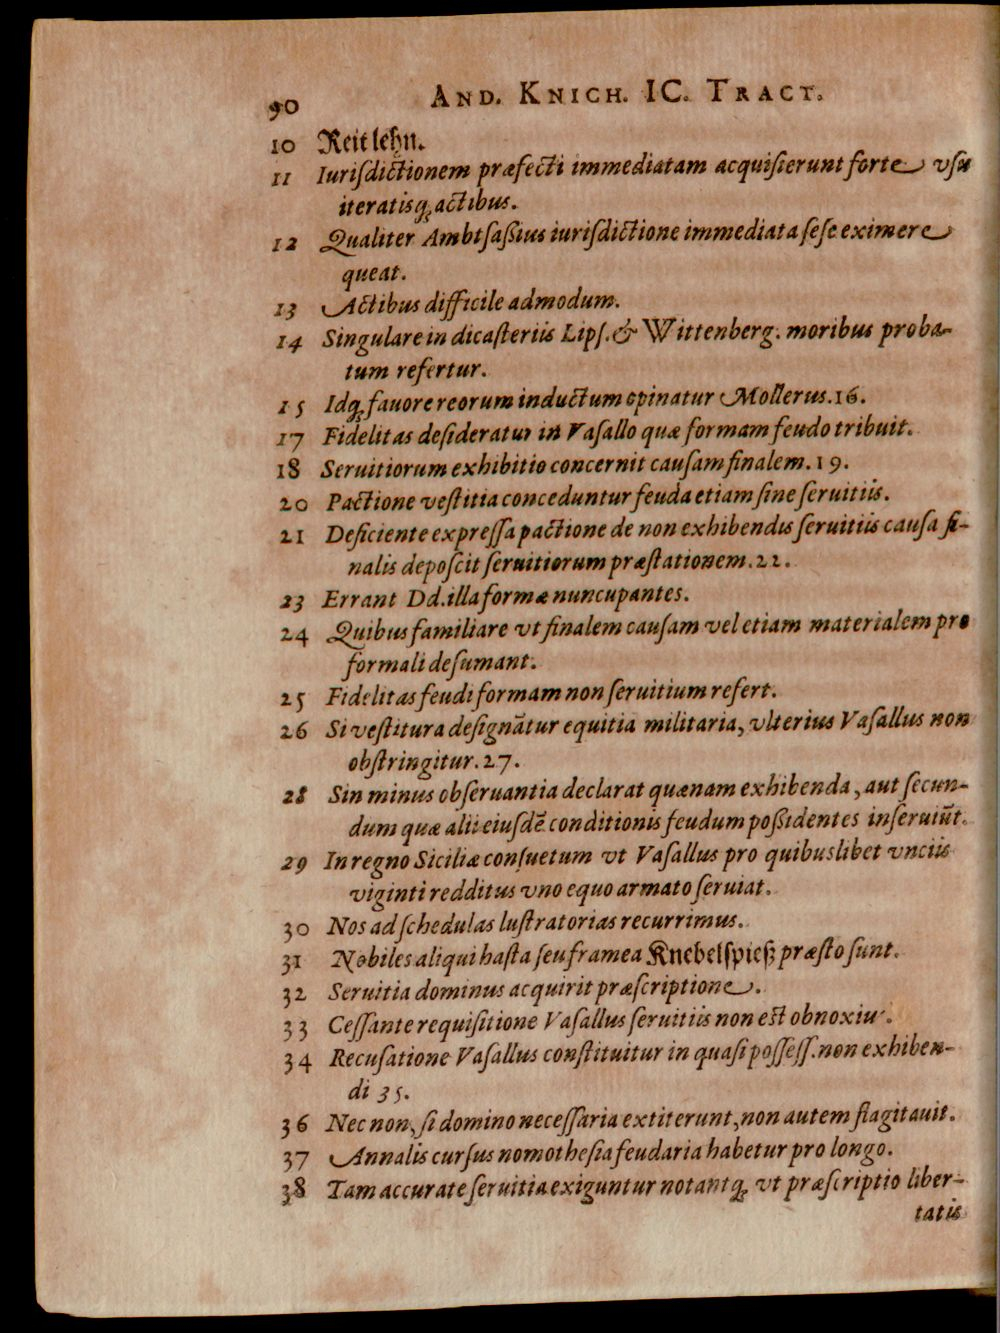 90 AND. KNICH. IC. TRACT.
10 Reitlehn.
11 Iurisdictionem præfecti immediatam acquisierunt forte vsu
iteratisq́; actibus.
12 Qualiter Ambtsaßius iurisdictione immediata sese eximere
queat.
13 Actibus difficile admodum.
14 Singulare in dicasteriis Lips. & Wittenberg. moribus proba-
tum refertur.
15 Idq́; fauore reorum inductum opinatur Mollerus. 16.
17 Fidelitas desideratur in Vasallo quæ formam feudo tribuit.
18 Seruitiorum exhibitio concernit causam finalem. 19.
20 Pactione vestitia conceduntur feuda etiam sine seruitiis.
21 Deficiente expressa pactione de non exhibendis seruitiis causa fi-
nalis deposcit seruitiorum præstationem. 22.
23 Errant Dd. illa formæ nuncupantes.
24 Quibus familiare vt finalem causam vel etiam materialem pro
formali desumant.
25 Fidelitas feudi formam non seruitium refert.
26 Si vestitura designãtur equitia militaria, vlterius Vasallus non
obstringitur. 27.
28 Sin minus obseruantia declarat quænam exhibenda, aut secun-
dum quæ alii eiusdẽ conditionis feudum poßidentes inseruiũt.
29 In regno Siciliæ consuetum vt Vasallus pro quibuslibet vnciis
viginti redditus vno equo armato seruiat.
30 Nos ad schedulas lustratorias recurrimus.
31 Nobiles aliqui hasta seu framea Knebelspieß præsto sunt.
32 Seruitia dominus acquirit præscriptione.
33 Cessante requisitione Vasallus seruitiis non est obnoxius.
34 Recusatione Vasallus constituitur in quasi possess. non exhiben-
di 35.
36 Nec non, si domino necessaria extiterunt, non autem flagitauit.
37 Annalis cursus nomothesia feudaria habetur pro longo.
38 Tam accurate seruitia exiguntur notantq́; vt præscriptio liber-
tatis